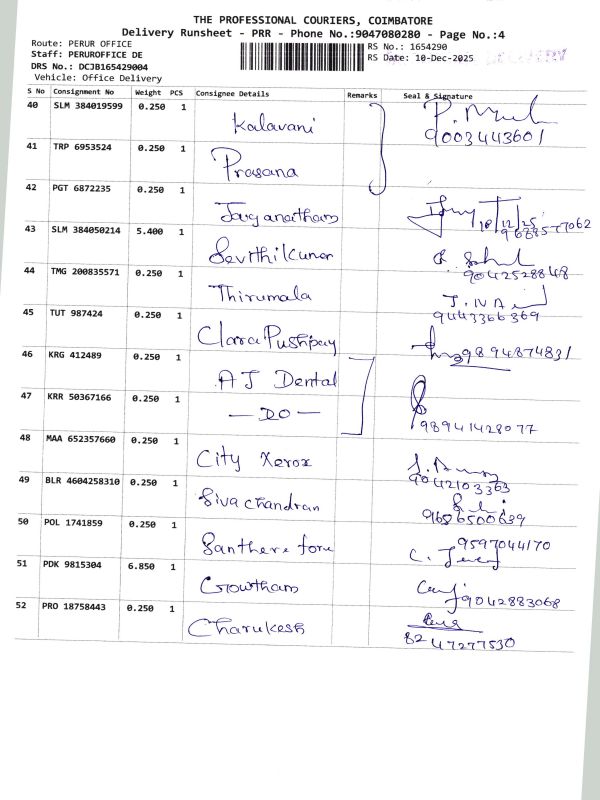 THE PROFESSIONAL COURIERS, COIMBATORE
Delivery Runsheet - PRR - Phone No.:9047080280 - Page No.:4
Route: PERUR OFFICE
RS No.: 1654290
Staff: PERUROFFICE DE
RS Date: 10-Dec-2025
DRS No.: DCJB165429004
Vehicle: Office Delivery
S No Consignment No Weight PCS Consignee Details Remarks Seal & Signature
40 SLM 384019599 0.250 1 Kalavani 9003443601
41 TRP 6953524 0.250 1 Prasana
42 PGT 6872235 0.250 1 Jaganatham 10/12/25
43 SLM 384050214 5.400 1 Sevthilkumar 9042528848
44 TMG 200835571 0.250 1 Thirumala 9443366369
45 TUT 987424 0.250 1 Clara Pushpay 9894874831
46 KRG 412489 0.250 1 AJ Dental
47 KRR 50367166 0.250 1 — DO — 98941428077
48 MAA 652357660 0.250 1 City Xerox 9042103363
49 BLR 4604258310 0.250 1 Siva chandran 9656500639
50 POL 1741859 0.250 1 9597044170
51 PDK 9815304 6.850 1 Gowtham 9042883068
52 PRO 18758443 0.250 1 Charukesh 8247277530